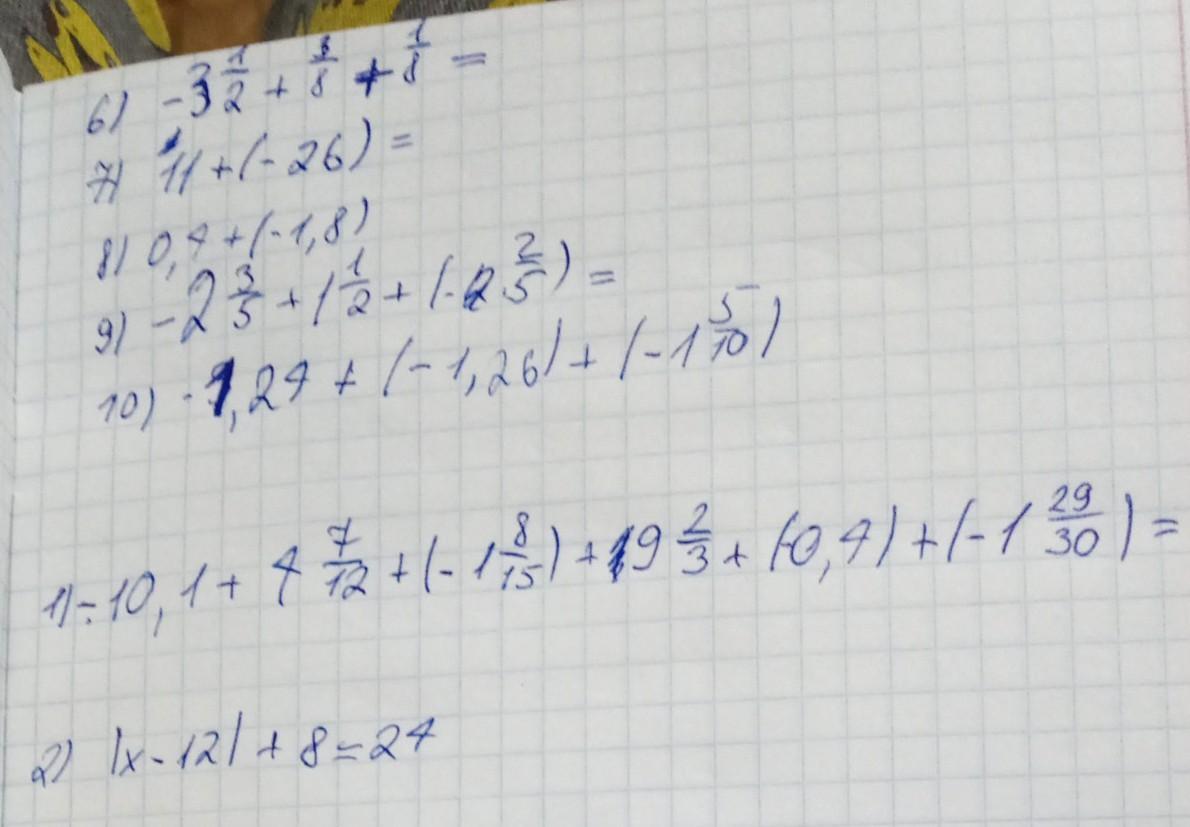 6) -3 1/2 + 3/8 + 1/8 =
7) 11 + (-26) =
8) 0,4 + (-1,8)
9) -2 3/5 + 1 1/2 + (-2 2/5) =
10) -1,24 + (-1,26) + (-1 5/10)
1) -10,1 + 4 7/12 + (-1 8/15) + 19 2/3 + (-0,4) + (-1 29/30) =
2) |x - 12| + 8 = 24